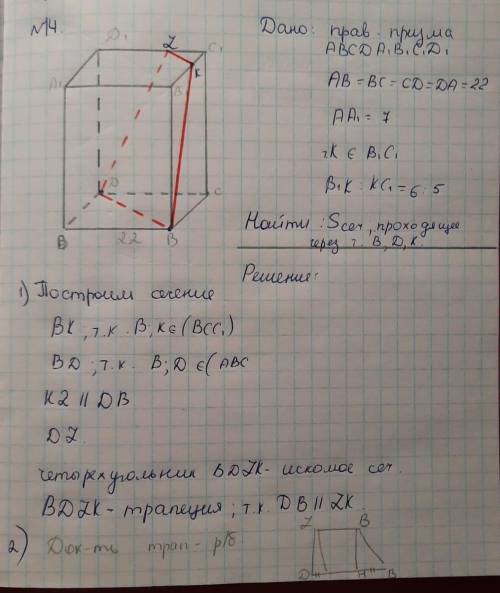 №14.
Дано: прав. призма
ABCDA₁B₁C₁D₁
AB = BC = CD = DA = 22
AA₁ = 7
т.K ∈ B₁C₁
B₁K : KC₁ = 6 : 5
Найти: Sсеч, проходящее
через т. B, D, K.
Решение:
D₁ Z C₁
K
A₁ B₁
D C
B 22 B
1) Построим сечение
BK, т.к. B; K ∈ (BCC₁)
BD; т.к. B; D ∈ (ABC
KZ || DB
DZ
четырехугольник BDZK - искомое сеч.
BDZK - трапеция; т.к. DB || ZK
2) Док-ть трап - р/б
Z B
D H B